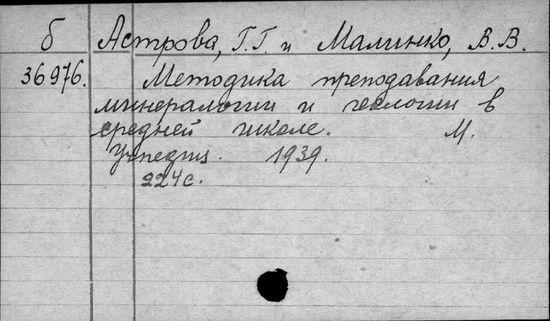 б Астрова, Г.Г. и Малинко, В.В.
36976. Методика преподавания
минералогии и геологии в
средней школе. М.
Учпедгиз. 1939.
224 с.